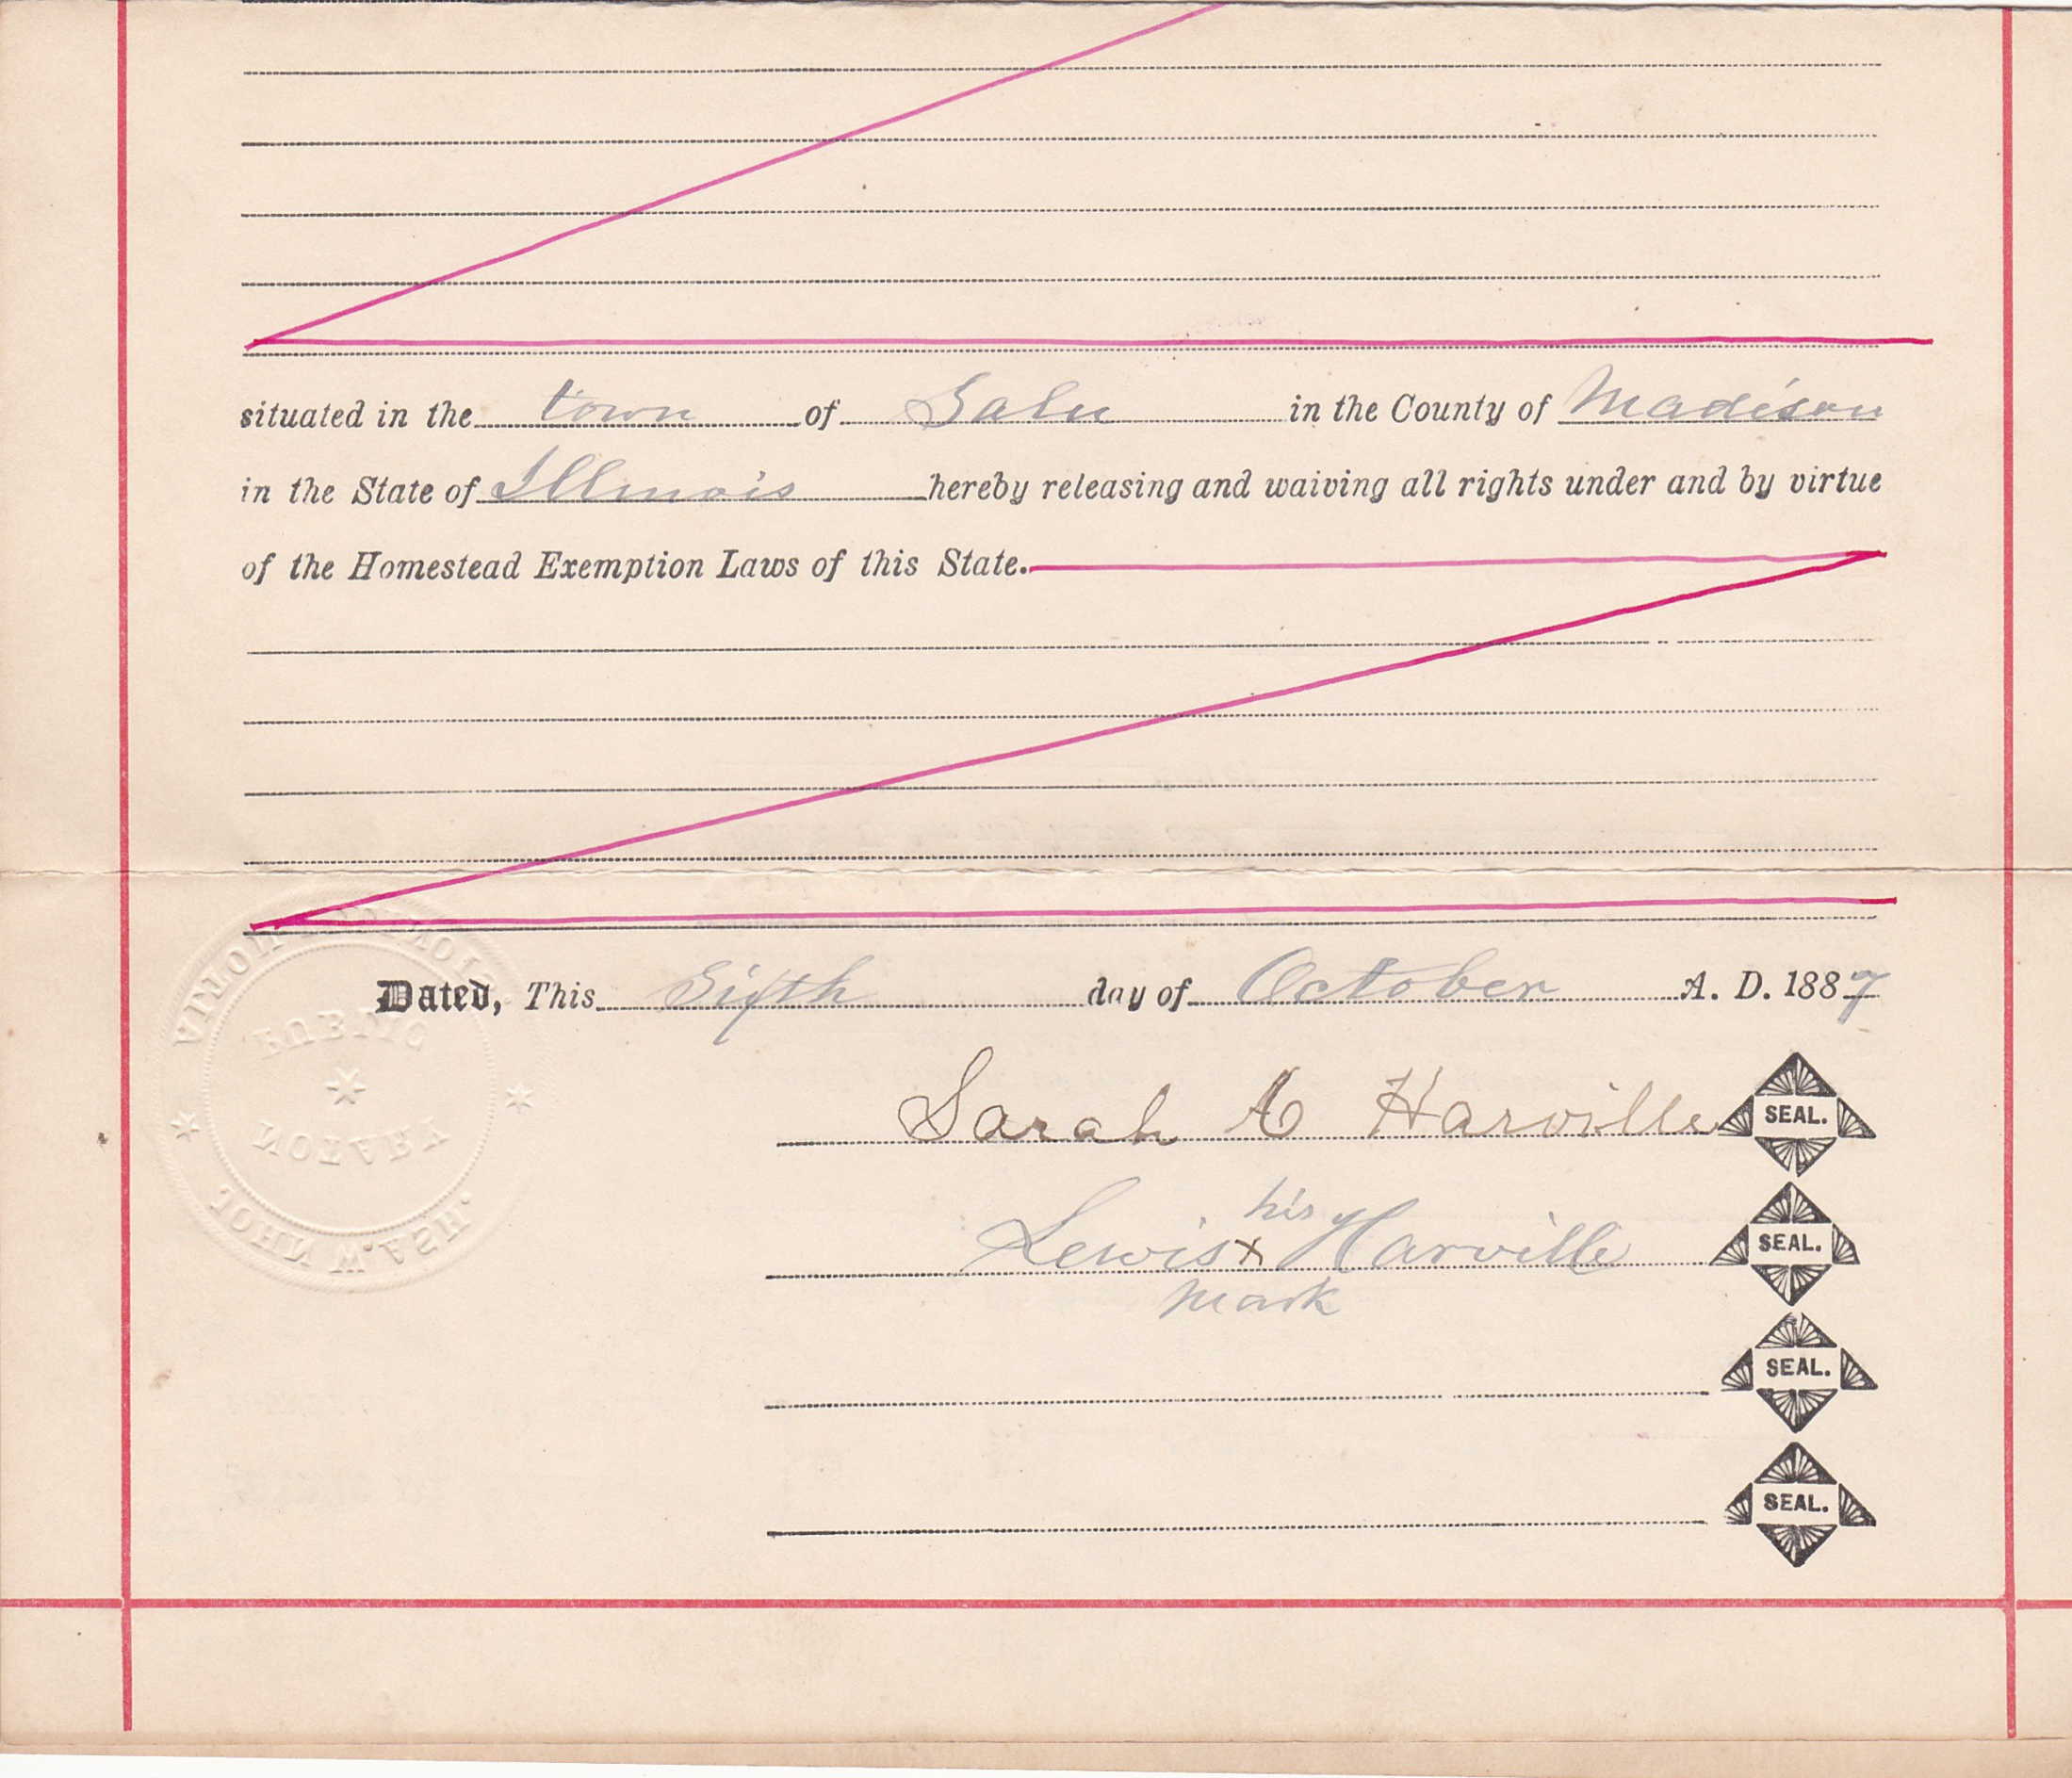 situated in the town of Salu in the County of Madison
in the State of Illinois hereby releasing and waiving all rights under and by virtue
of the Homestead Exemption Laws of this State.
Dated, This Sixth day of October A. D. 1887
Sarah A Harville SEAL.
his
Lewis x Harville SEAL.
mark
SEAL.
SEAL.
ALTON ILLINOIS
PUBLIC
NOTARY
JOHN W. ASH.